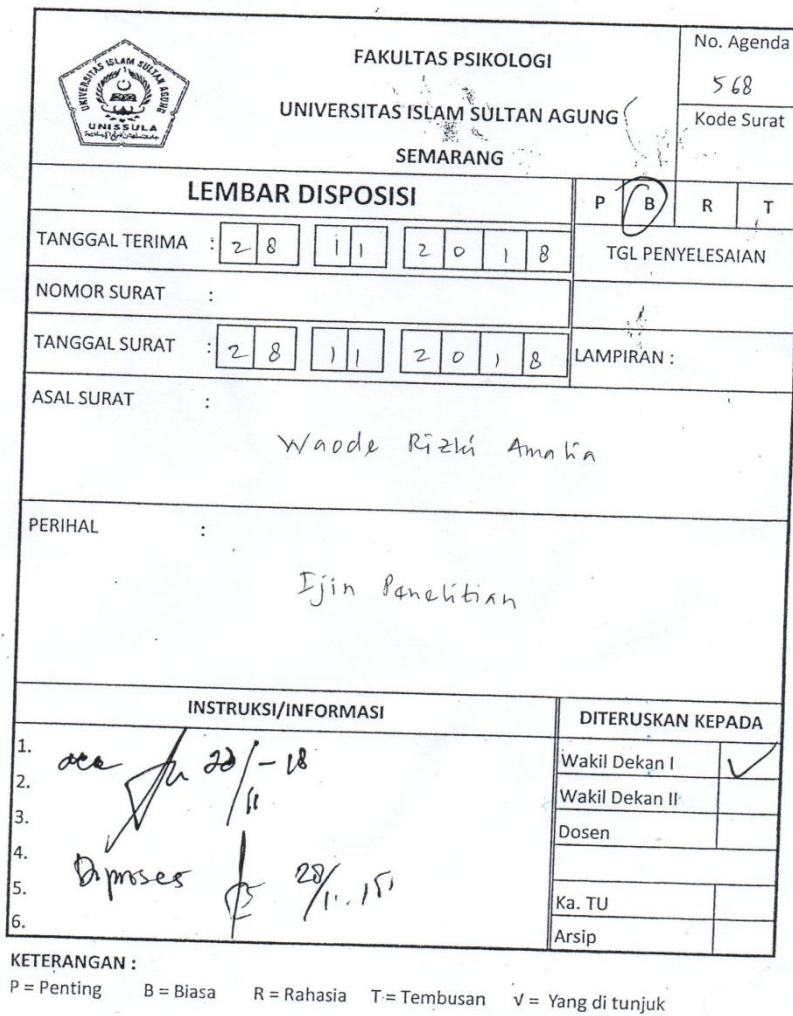 UNIVERSITAS ISLAM SULTAN AGUNG
UNISSULA
FAKULTAS PSIKOLOGI
UNIVERSITAS ISLAM SULTAN AGUNG
SEMARANG
No. Agenda
568
Kode Surat
LEMBAR DISPOSISI
P B R T
TANGGAL TERIMA : 28 11 2018
TGL PENYELESAIAN
NOMOR SURAT :
TANGGAL SURAT : 28 11 2018
LAMPIRAN :
ASAL SURAT :
Waode Rizki Amalia
PERIHAL :
Ijin Penelitian
INSTRUKSI/INFORMASI
DITERUSKAN KEPADA
1. acc
2.
3.
4.
5. Diproses
6.
Wakil Dekan I √
Wakil Dekan II
Dosen
Ka. TU
Arsip
KETERANGAN :
P = Penting B = Biasa R = Rahasia T = Tembusan √ = Yang di tunjuk